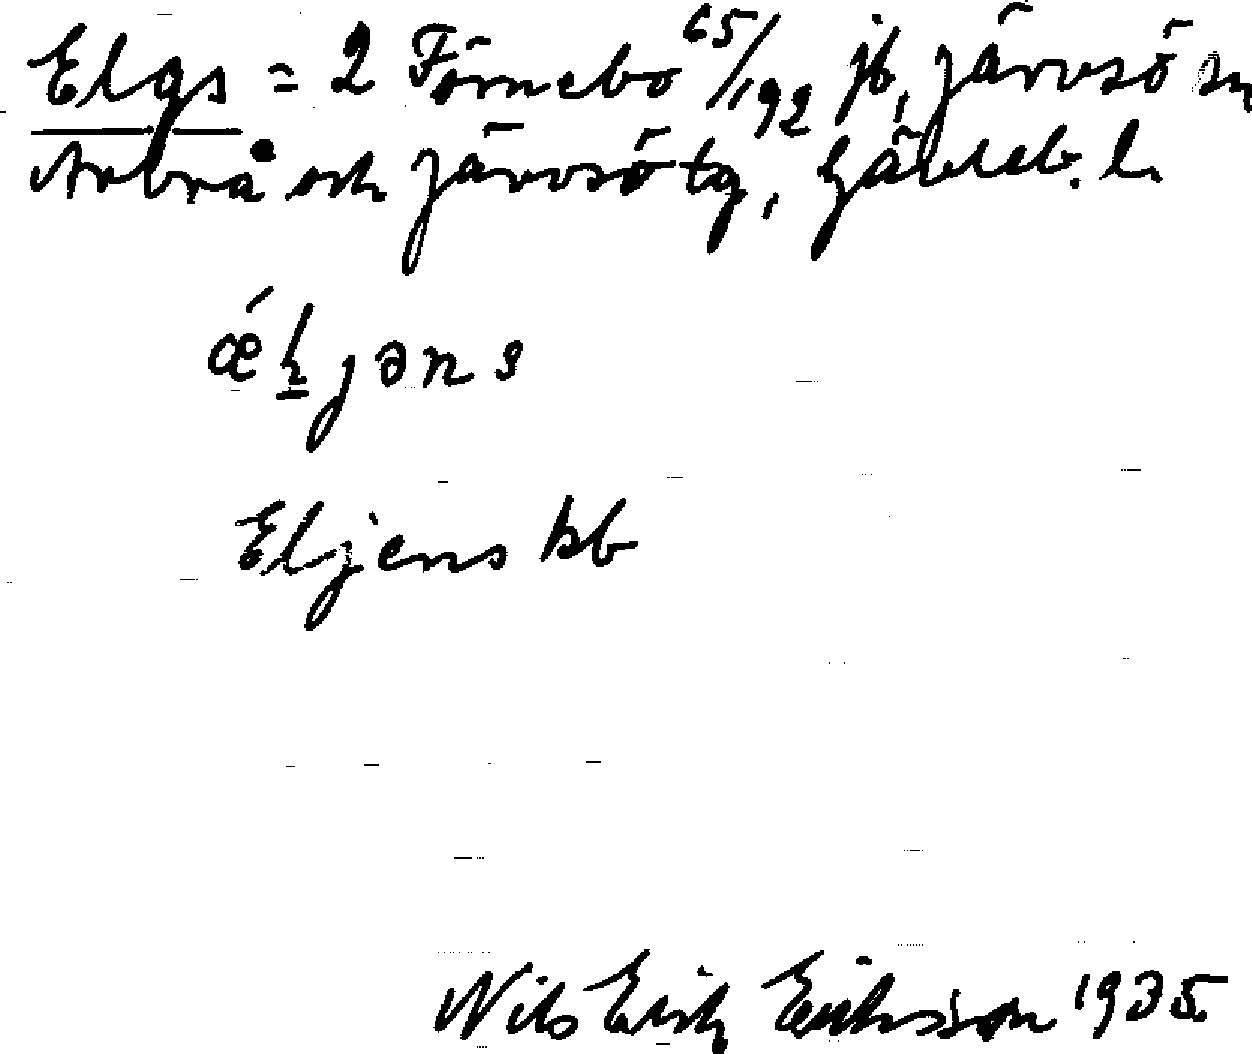 Elgs = 2 Förnebo 65/192 jb, Järvsö sn
Arbrå och Järvsö tg, Gävleb. l.
ǽḻjəns
Eljens kb
Nils Erik Eriksson 1935.